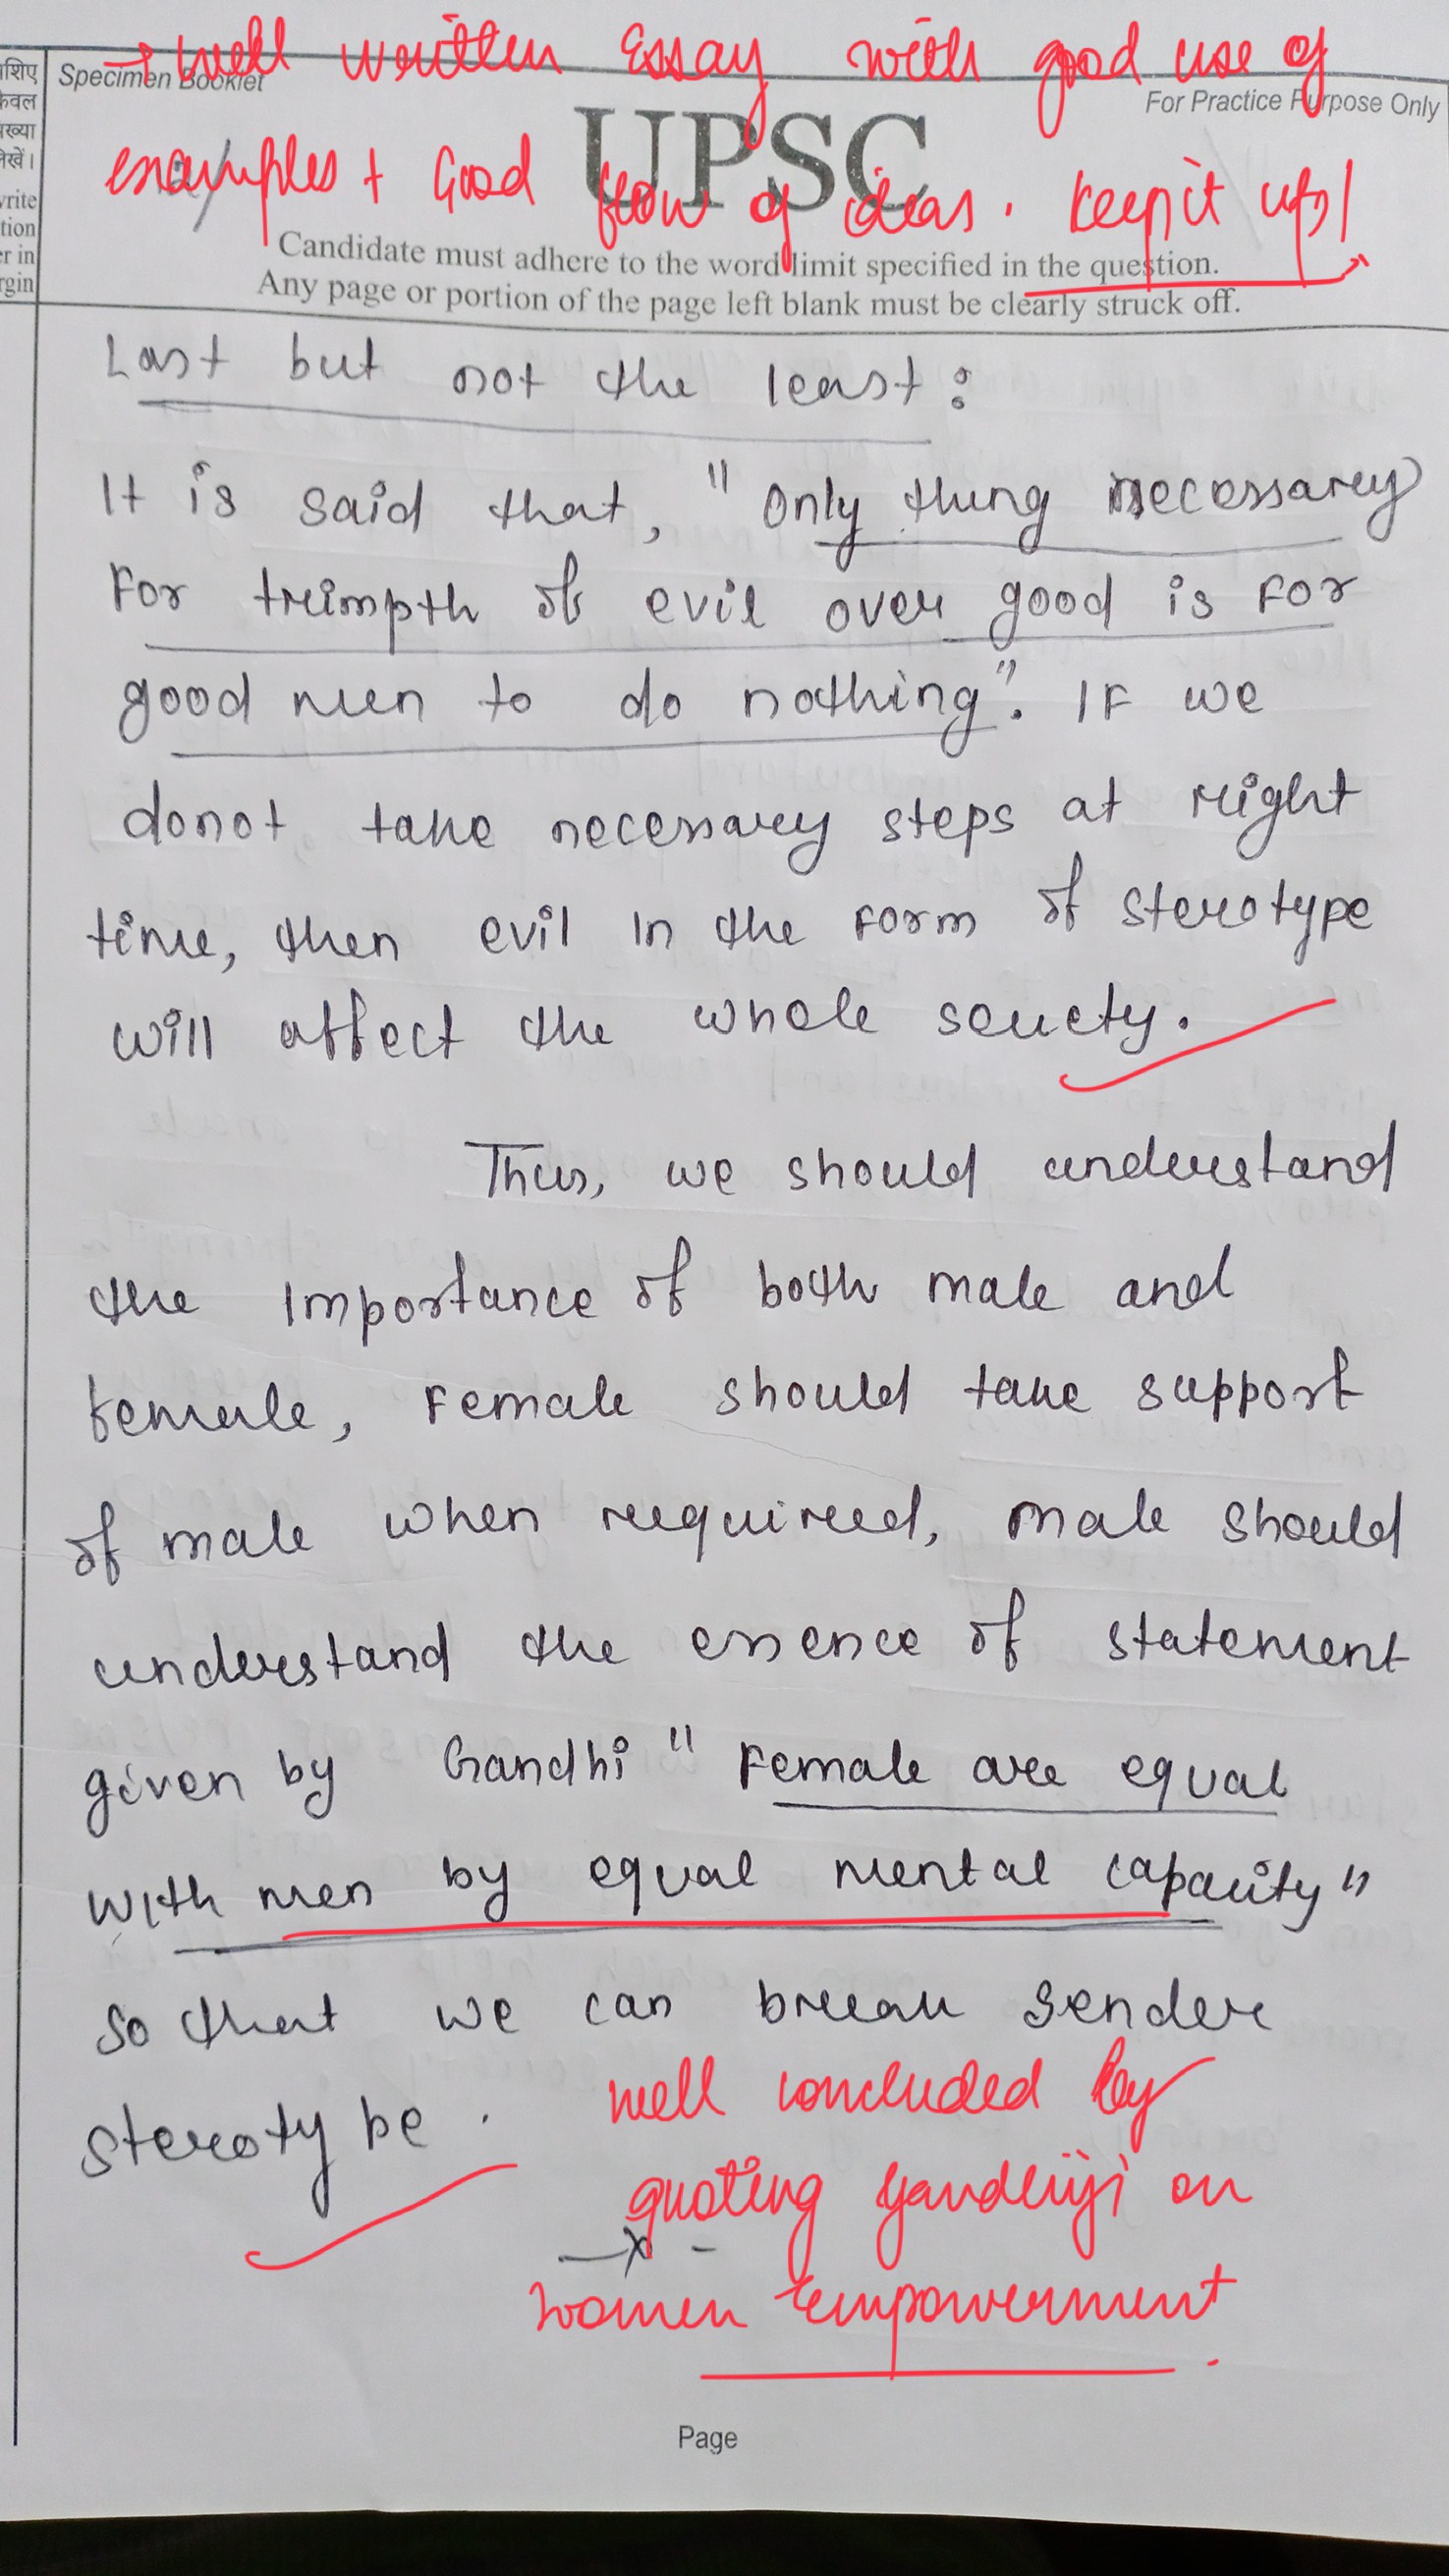 → Well written Essay with good use of
Specimen Booklet
For Practice Purpose Only
examples + Good flow of ideas. Keep it up!
UPSC
Candidate must adhere to the word limit specified in the question.
Any page or portion of the page left blank must be clearly struck off.
Last but not the least:
It is said that, "Only thing necessary
for treimpth of evil over good is for
good men to do nothing". If we
donot take necessary steps at right
time, then evil in the form of sterotype
will affect the whole society.
Thus, we should understand
the importance of both male and
female, Female should take support
of male when required, male should
understand the essence of statement
given by Gandhi "Female are equal
with men by equal mental capacity"
so that we can break gender
sterotype.
well concluded by
quoting Gandhiji on
— x -
women empowerment.
Page